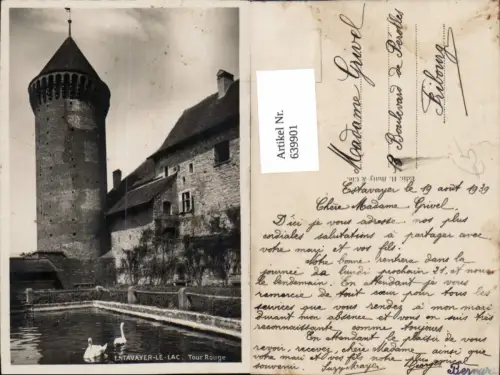 ESTAVAYER-LE-LAC. Tour Rouge
Artikel Nr.
639901
Madame Grivel
18 Boulevard de Pérolles
Fribourg
Estavayer le 19 août 1939
Chère Madame Grivel.
D'ici je vous adresse nos plus
cordiales salutations à partager avec
votre mari et vos fils!
Notre bonne rentrera dans la
journée de lundi prochain 21. et nous
le lendemain. En attendant je vous
remercie de tout cœur pour tous les
services que vous rendez à mon mari
durant mon absence et vous en suis très
reconnaissante comme toujours.
En attendant le plaisir de vous
revoir, recevez, chère Madame ainsi que
votre mari et vos fils nos plus
souvenir.